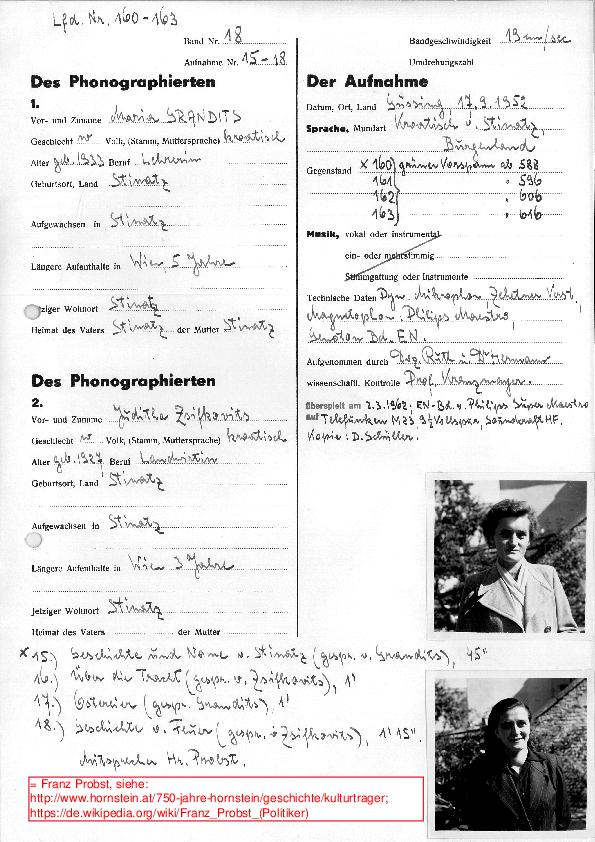 Lfd. Nr. 160 - 163
Band Nr. 18
Aufnahme Nr. 15 - 18
Bandgeschwindigkeit 19 cm/sec
Umdrehungszahl
Des Phonographierten
1.
Vor- und Zuname Maria GRANDITS
Geschlecht w Volk, (Stamm, Muttersprache) kroatisch
Alter geb. 1933 Beruf Lehrerin
Geburtsort, Land Stinatz
Aufgewachsen in Stinatz
Längere Aufenthalte in Wien, 5 Jahre
Jetziger Wohnort Stinatz
Heimat des Vaters Stinatz der Mutter Stinatz
Des Phonographierten
2.
Vor- und Zuname Juditha Zsifkovits
Geschlecht w Volk, (Stamm, Muttersprache) kroatisch
Alter geb. 1927 Beruf Landwirtin
Geburtsort, Land Stinatz
Aufgewachsen in Stinatz
Längere Aufenthalte in Wien 3 Jahre
Jetziger Wohnort Stinatz
Heimat des Vaters der Mutter
Der Aufnahme
Datum, Ort, Land Güssing, 17.9.1952
Sprache, Mundart Kroatisch v. Stinatz,
Burgenland
Gegenstand x 160 grüner Vorspann ab 588
161 " 596
162 " 606
163 " 616
Musik, vokal oder instrumental
ein- oder mehrstimmig
Stimmgattung oder Instrumente
Technische Daten Dyn. Mikrophon, Zehetner Verst.
Magnetophon: Philips Maestro,
Genoton Bd. EN.
Aufgenommen durch Ing. Rüth u. Dr Hermann
wissenschaftl. Kontrolle Prof. Kranzmayer.
überspielt am 2.3.1962, EN-Bd. v. Philips Super Maestro
auf Telefunken M23 9½ Vollspur, Soundcraft HF.
Kopie: D. Schüller.
x 15.) Geschichte und Name v. Stinatz (gespr. v. Grandits), 45"
16.) Über die Tracht (gespr. v. Zsifkovits), 1'
17.) Ostereier (gespr. Grandits), 1'
18.) Geschichte v. Feuer (gespr. v. Zsifkovits), 1' 15".
Mitsprecher Hr. Probst.
= Franz Probst, siehe:
http://www.hornstein.at/750-jahre-hornstein/geschichte/kulturtrager;
https://de.wikipedia.org/wiki/Franz_Probst_(Politiker)